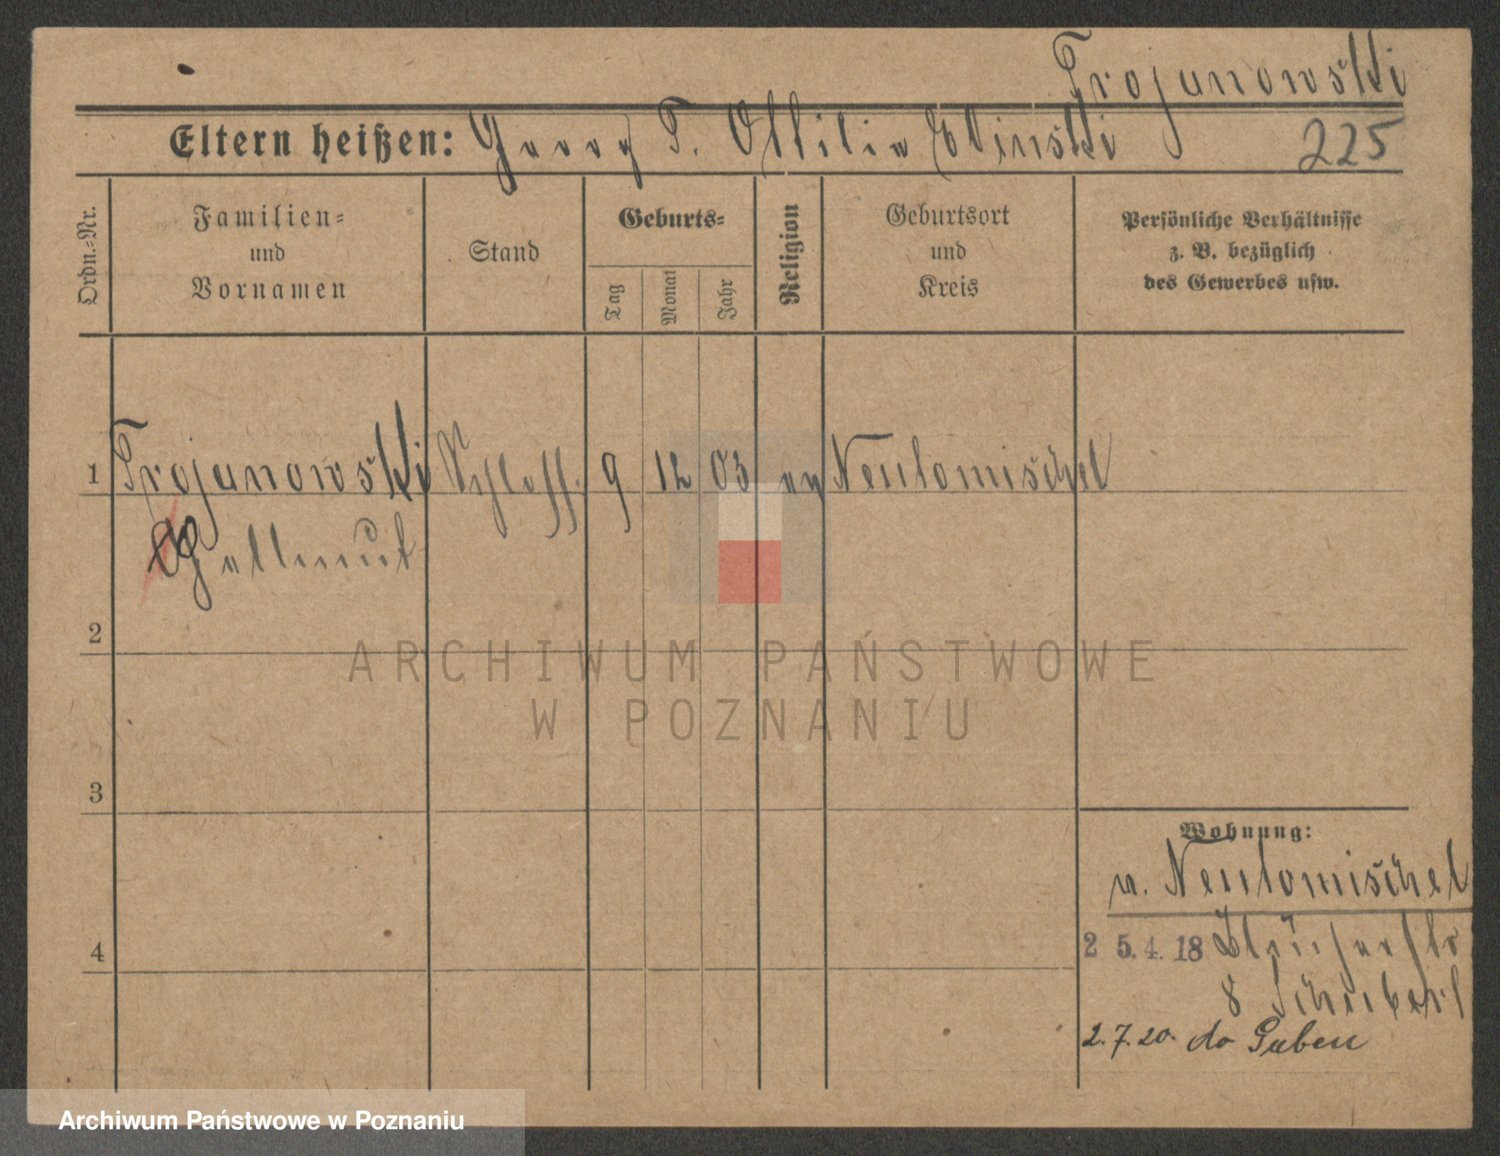 Trojanowski
Eltern heißen: Georg T. Ottilia Evinski
225
Ordn.=Nr.
Familien=
und
Vornamen
Stand
Geburts=
Tag
Monat
Jahr
Religion
Geburtsort
und
Kreis
Persönliche Verhältnisse
z. B. bezüglich
des Gewerbes usw.
1 Trojanowski Schloss. 9 12 03 ev Neutomischel
Hellmut
2
ARCHIWUM PAŃSTWOWE
W POZNANIU
3
Wohnung:
v. Neutomischel
4
2 5.4.18 Blücherstr
8
2.7.20. do Guben
Archiwum Państwowe w Poznaniu